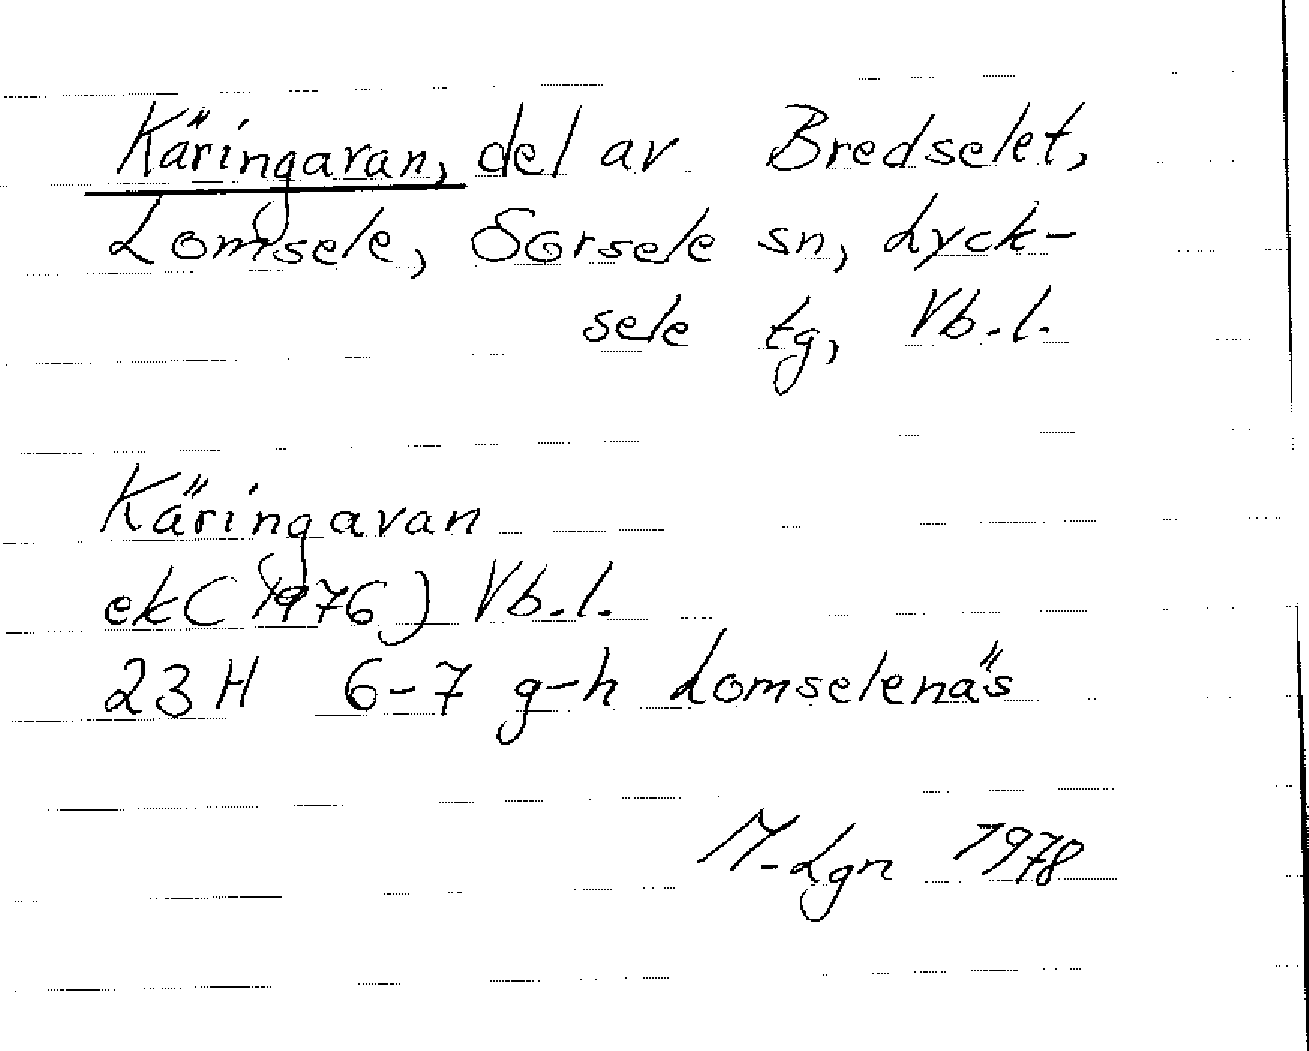 Käringavan, del av Bredselet,
Lomsele, Sorsele sn, Lyck-
sele tg, Vb.l.
Käringavan
ek (1976) Vb.l.
23H 6-7 g-h Lomselenäs
M-Lgn 1978